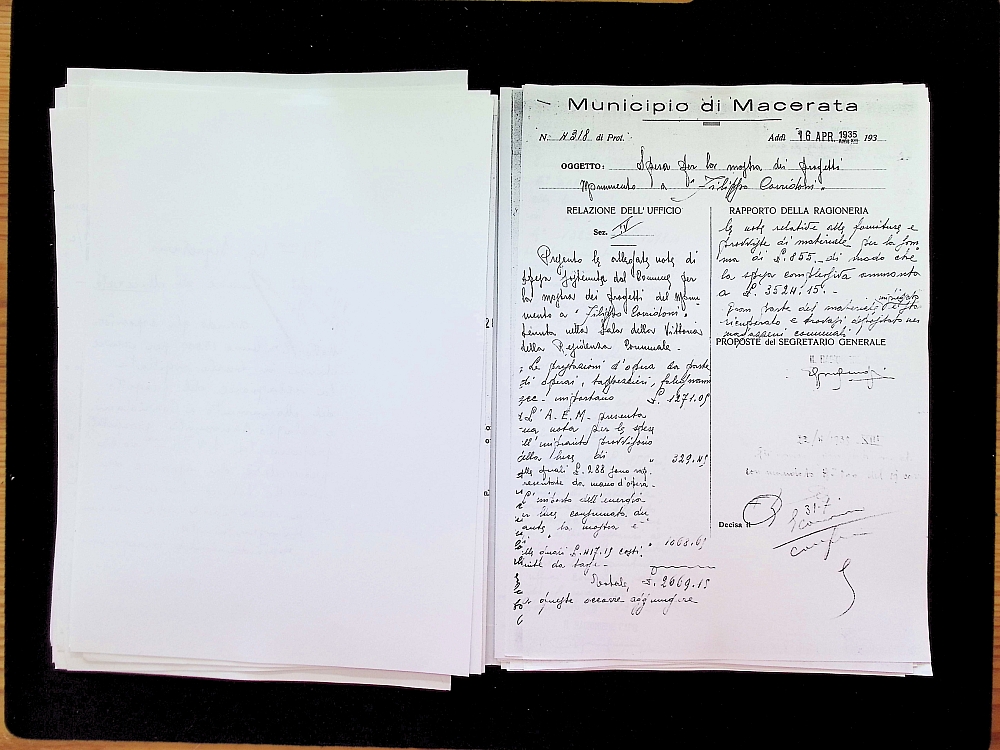 Municipio di Macerata
N. 4318 di Prot.
Addì 16 APR. 1935 193
OGGETTO: Spesa per la mostra dei progetti
Monumento a "Filippo Corridoni".
RELAZIONE DELL'UFFICIO
Sez. IV
Presento le allegate note di
spesa sostenuta dal Comune per
la mostra dei progetti del Monu-
mento a "Filippo Corridoni".
tenuta nella Sala della Vittoria
della Residenza Comunale.
Le prestazioni d'opera da parte
di operai, tappezzieri, falegnami
ecc. importano £. 1271.05
L'A.E.M. presenta
una nota per le spese
dell'impianto provvisorio
della luce di " 329.45
delle quali £. 288 sono rap.
presentate da mano d'opera.
L'importo dell'energia
per luce consumata du
rante la mostra è
di " 1068.65
delle quali £. 417.15 costi.
tuite da tasse.
Totale £. 2669.15
A queste occorre aggiungere
RAPPORTO DELLA RAGIONERIA
le note relative alle forniture e
provviste di materiale per la som
ma di £. 855. di modo che
la spesa complessiva ammonta
a £. 3524.15.-
Gran parte del materiale impiegato
recuperato e trovasi depositato nei
magazzini comunali.
PROPOSTE del SEGRETARIO GENERALE
Decisa il
31-7